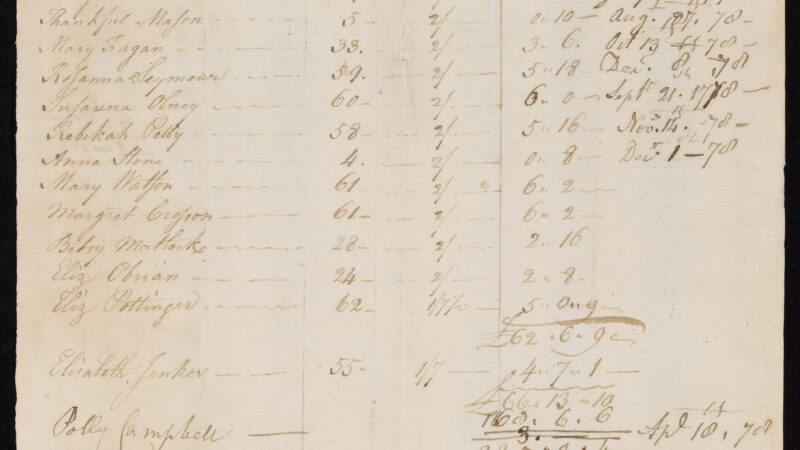 Thankful Mason 5 - 2/ 0 " 10 - Aug. 27. 78 -
Mary Fagan 33 - 2/ 3 " 6. Oct 13 78 -
Rosanna Seymour 59. 2/ 5 " 18 - Decr. 8 78
Susanna Olney 60 - 2/ 6 " 0 - Sept 21. 1778 -
Rebekah Petty 58 - 2/ 5 " 16 Novr. 14. 78 -
Anna Stone 4. 2/ 0 " 8 - Decr. 1 - 78
Mary Watson 61 - 2/ 6 " 2 -
Margret Croson 61 - 2/ 6 " 2 -
Betsy Matlock 28 - 2/ 2 " 16
Eliz Obrian 24 - 2/ 2 " 8 -
Eliz Pottinger 62 - 5 " 0 " 9 -
£62 " 6 " 9
Elisabeth Jenkes 55 - 1/7 4 " 7 " 1 -
£66 " 13 " 10
168 " 6 . 6
Polly Campbell 3. Apl 18, 78